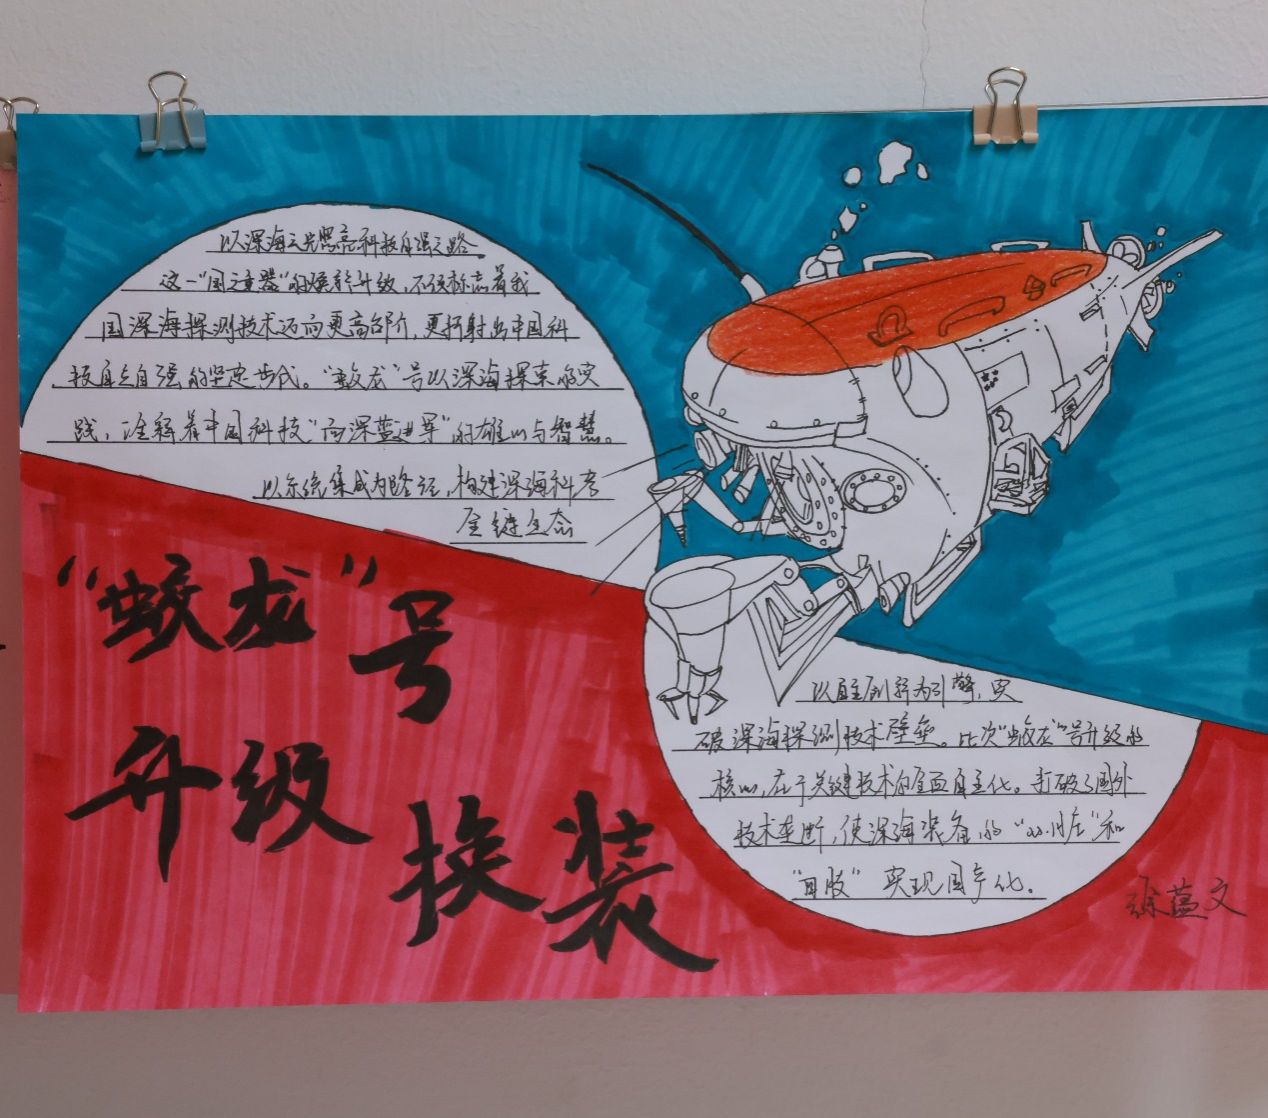 以深海之光照亮科技自强之路
这一"国之重器"的焕新升级,不仅标志着我
国深海探测技术迈向更高台阶,更折射出中国科
技自立自强的坚定步伐。"蛟龙"号以深海探索的实
践,诠释着中国科技"向深蓝进军"的雄心与智慧。
以系统集成为路径,构建深海科考
全链生态
"蛟龙"号
升级
换装
以自主创新为引擎,突
破深海探测技术壁垒。此次"蛟龙"号升级的
核心,在于关键技术的全面自主化。打破了国外
技术垄断,使深海装备的"心脏"和
"四肢"实现国产化。
徐蕴文